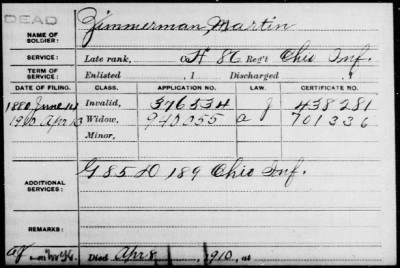 DEAD
NAME OF SOLDIER: Zimmerman, Martin
SERVICE: Late rank, Co H 86 Reg't Ohio Inf.
TERM OF SERVICE: Enlisted , 1 Discharged , 1
DATE OF FILING. CLASS. APPLICATION NO. LAW. CERTIFICATE NO.
1880 June 14 Invalid, 376534 J 438281
1910 Apr 13 Widow, 940055 a 701336
Minor,
ADDITIONAL SERVICES: G 85 & D 189 Ohio Inf.
REMARKS:
Died Apr 8, 1910, at